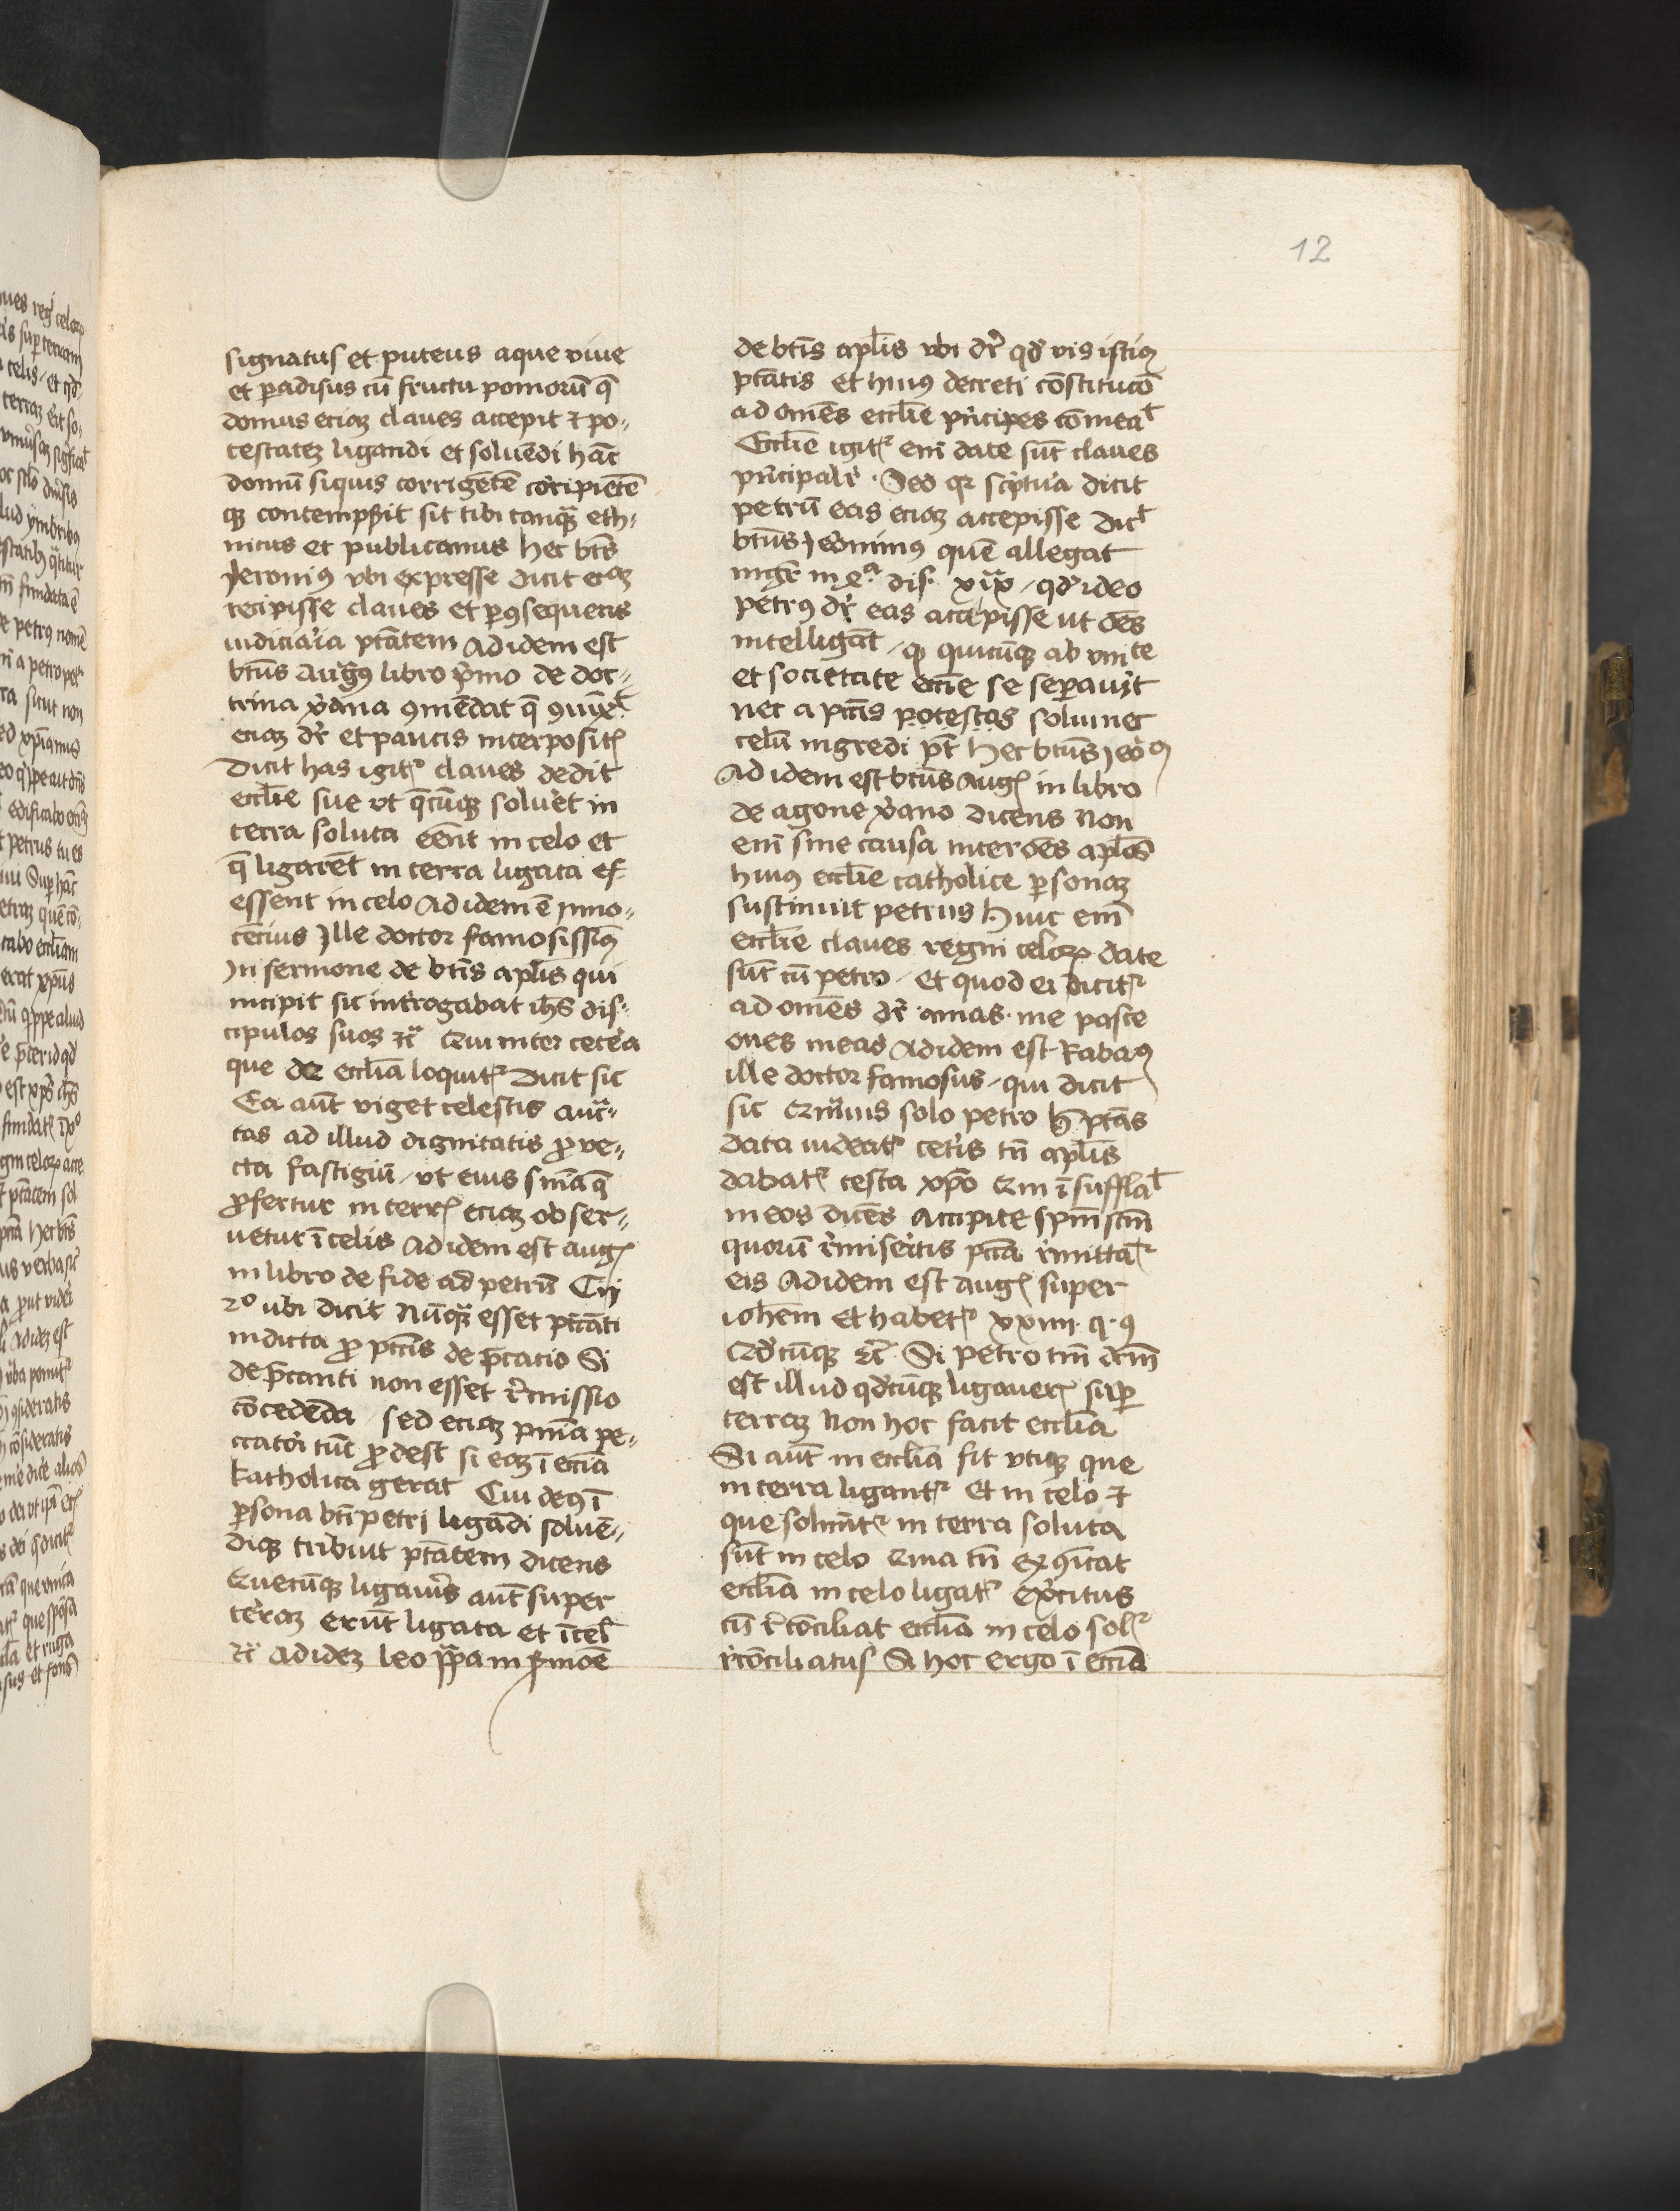 12
signatus et puteus aque viue
et paradisus cū fructu pomorū q̄
domus eciaʒ claues accepit ⁊ po⸗
testateʒ ligandi et soluēdi hāc
domū siquis corrigētē corripiētē
qʒ contempsit sit tibi tanqᷓ eth⸗
nicus et publicanus hec bt̄s
Jeronimꝰ vbi expresse dicit eaʒ
recipisse claues et ꝑ ꝯsequens
iudiciaria ptātem Ad idem est
bt̄us Augꝰ libro pͥmo de doc⸗
trina xᷓana ꝯmēdat q̄
eciaʒ dr̄ et paucis interpositꝭ
Dicit has igitᷣ claues dedit
eccl̄ie sue vt q̄cūqʒ soluet in
terra soluta eēnt in celo et
q̄ ligarēt in terra ligata es
essent in celo Ad idem ē Inno⸗
cēcius Ille doctor famosissimꝰ
In sermone de bt̄is apl̄is qui
incipit sic introgabat ih̄s dis⸗
cipulos suos ⁊c̄ Qui inter cetera
que de eccl̄ia loquitᷣ Dicit sic
Ea aūt viget celestis auct̄⸗
tas ad illud dignitatis ꝓue⸗
cta fastigiū / vt eius sn̄ia q̄
ꝓfertur in terrꝭ eciaʒ obser⸗
uetur ī celis Ad idem est augꝭ
in libro de fide ad petrū
2º ubi dicit Nūqᷓ esset pccāti
indicta ꝓ pctīs de p̄catio Si
de p̄canti non esset r̄missio
cōcedēda / sed eciaʒ pn̄ia pe⸗
ccatori tūc ꝓdest si eaʒ ī ecc̄ia
katholica gerat Cui deꝰ ī
ꝑsona bt̄i petri ligādi soluē⸗
diqʒ tribuit ptātem dicens
Quecūqʒ ligaueris aūt super
terraʒ erūt ligata et ī cel̄
⁊c̄ Ad ideʒ leo pᷓpa in ẜmōe
de bt̄is apl̄is vbi dr̄ qd̄ vis istiꝰ
ptātis et huiꝰ decreti cōstitucō
ad omēs eccl̄ie pͥncipes cōmeat
Eccl̄ie igitᷣ eni date sūt claues
pͥncipalr̄ · Sed qꝛ scͥptura dicit
petrū eas eciaʒ accepisse dict
bt̄us Jeōnimꝰ quē allegat
mgr̄ in dis. xix / qd̄ ideo
petrꝰ dr̄ eas accepisse ut oēs
intelligāt / qꝫ quicūqʒ ab vnite
et societate ecc̄ie se separauͥt
nec a pctīs potestas solui nec
celū ingredi pt̄ Hec bt̄us Jeoꝰ
Ad idem est bt̄us Augꝭ in libro
de agone xᷓano dicens Non
eni sine causa inter oēs apl̄os
huiꝰ eccl̄ie catholice ꝑsonaʒ
sustinuit petrus Huic em̄
eccl̄ie claues regni celorꝝ date
sūt cū petro / et quod ei dicitᷣ
ad omēs dr̄ amas me pasce
oues meas Ad idem est Rabaꝰ
ille doctor famosus / qui dicit
sic Qᷓuis solo petro h̄ ptās
data videatᷣ cetͥs tn̄ apl̄is
dabatᷣ testa xp̄o Qm̄ īsufflat
in eos dicēs Accipite sp̄m sc̄m
quorū r̄miseritis pctā r̄mittātᷣ
eis Ad idem est Augꝭ super
ioh̄em Et habetᷣ xxiiii · q · 9
Qd̄cūqʒ ⁊c̄ Si petro tm̄ dc̄m
est illud qd̄cūqʒ ligauerꝭ suꝑ
terraʒ Non hoc facit eccl̄ia
Si aūt in eccl̄ia fit vtiqʒ que
in terra ligantᷣ Et in celo ⁊
que soluūtᷣ in terra soluta
sūt in celo Quia tn̄ exꝯīcat
eccl̄ia in celo ligatᷣ ex̄citus
cū r̄conciliat eccl̄ia in celo solᷣ
r̄cōciliatus Si hoc ergo ī ecc̄ia